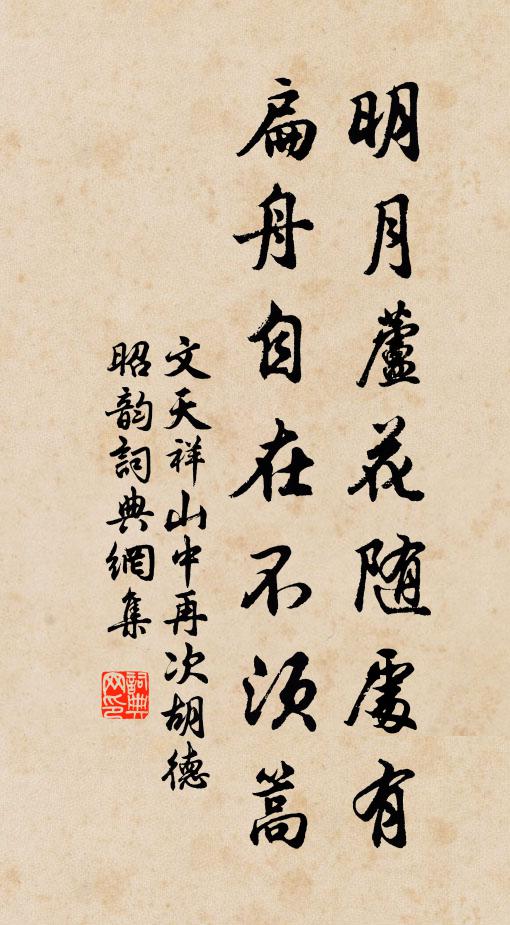 明月蘆花随處有
扁舟自在不須篙
文天祥山中再次胡德
昭韵詞典網集
詞典网印